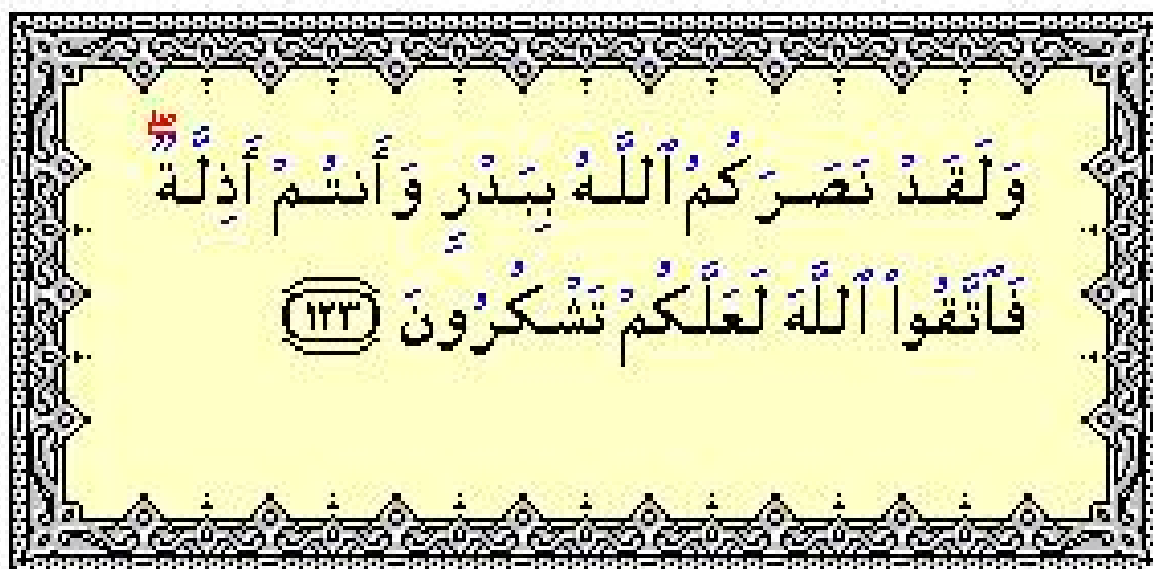 وَلَقَدْ نَصَرَكُمُ ٱللَّهُ بِبَدْرٍ وَأَنتُمْ أَذِلَّةٌ ۖ
فَٱتَّقُوا۟ ٱللَّهَ لَعَلَّكُمْ تَشْكُرُونَ ١٢٣